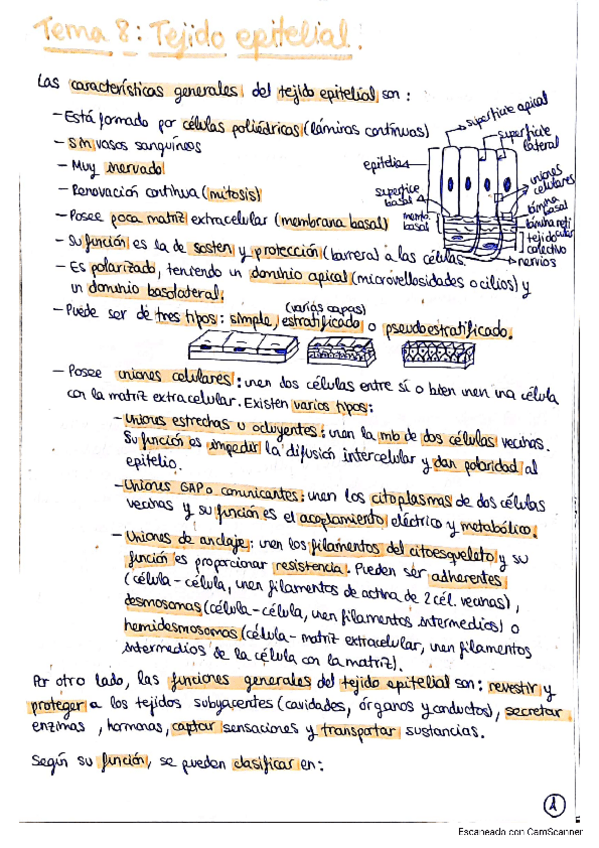 Tema 8: Tejido epitelial.
Las características generales del tejido epitelial son:
- Está formado por células poliédricas (láminas continuas)
- Sin vasos sanguíneos
- Muy inervado
- Renovación continua (mitosis)
- Posee poca matriz extracelular (membrana basal)
- Su función es la de sosten y protección (barrera) a las células.
- Es polarizado, teniendo un dominio apical (microvellosidades o cilios) y
un dominio basolateral.
- Puede ser de tres tipos: simple, estratificado (varias capas) o pseudoestratificado.
superficie apical
superficie
lateral
epitelio
uniones
celulares
superficie
basal
lámina
basal
memb.
basal
lámina reticular
tejido
colectivo
nervios
- Posee uniones celulares: unen dos células entre sí o bien unen una célula
con la matriz extracelular. Existen varios tipos:
- Uniones estrechas u ocluyentes: unen la mb de dos células vecinas.
Su función es impedir la difusión intercelular y dan polaridad al
epitelio.
- Uniones GAP o comunicantes: unen los citoplasmas de dos células
vecinas y su función es el acoplamiento eléctrico y metabólico.
- Uniones de anclaje: unen los filamentos del citoesqueleto y su
función es proporcionar resistencia. Pueden ser adherentes
(célula-célula, unen filamentos de actina de 2 cél. vecinas),
desmosomas (célula-célula, unen filamentos intermedios) o
hemidesmosomas (célula-matriz extracelular, unen filamentos
intermedios de la célula con la matriz).
Por otro lado, las funciones generales del tejido epitelial son: revestir y
proteger a los tejidos subyacentes (cavidades, órganos y conductos), secretar
enzimas, hormonas, captar sensaciones y transportar sustancias.
Según su función, se pueden clasificar en:
1
Escaneado con CamScanner